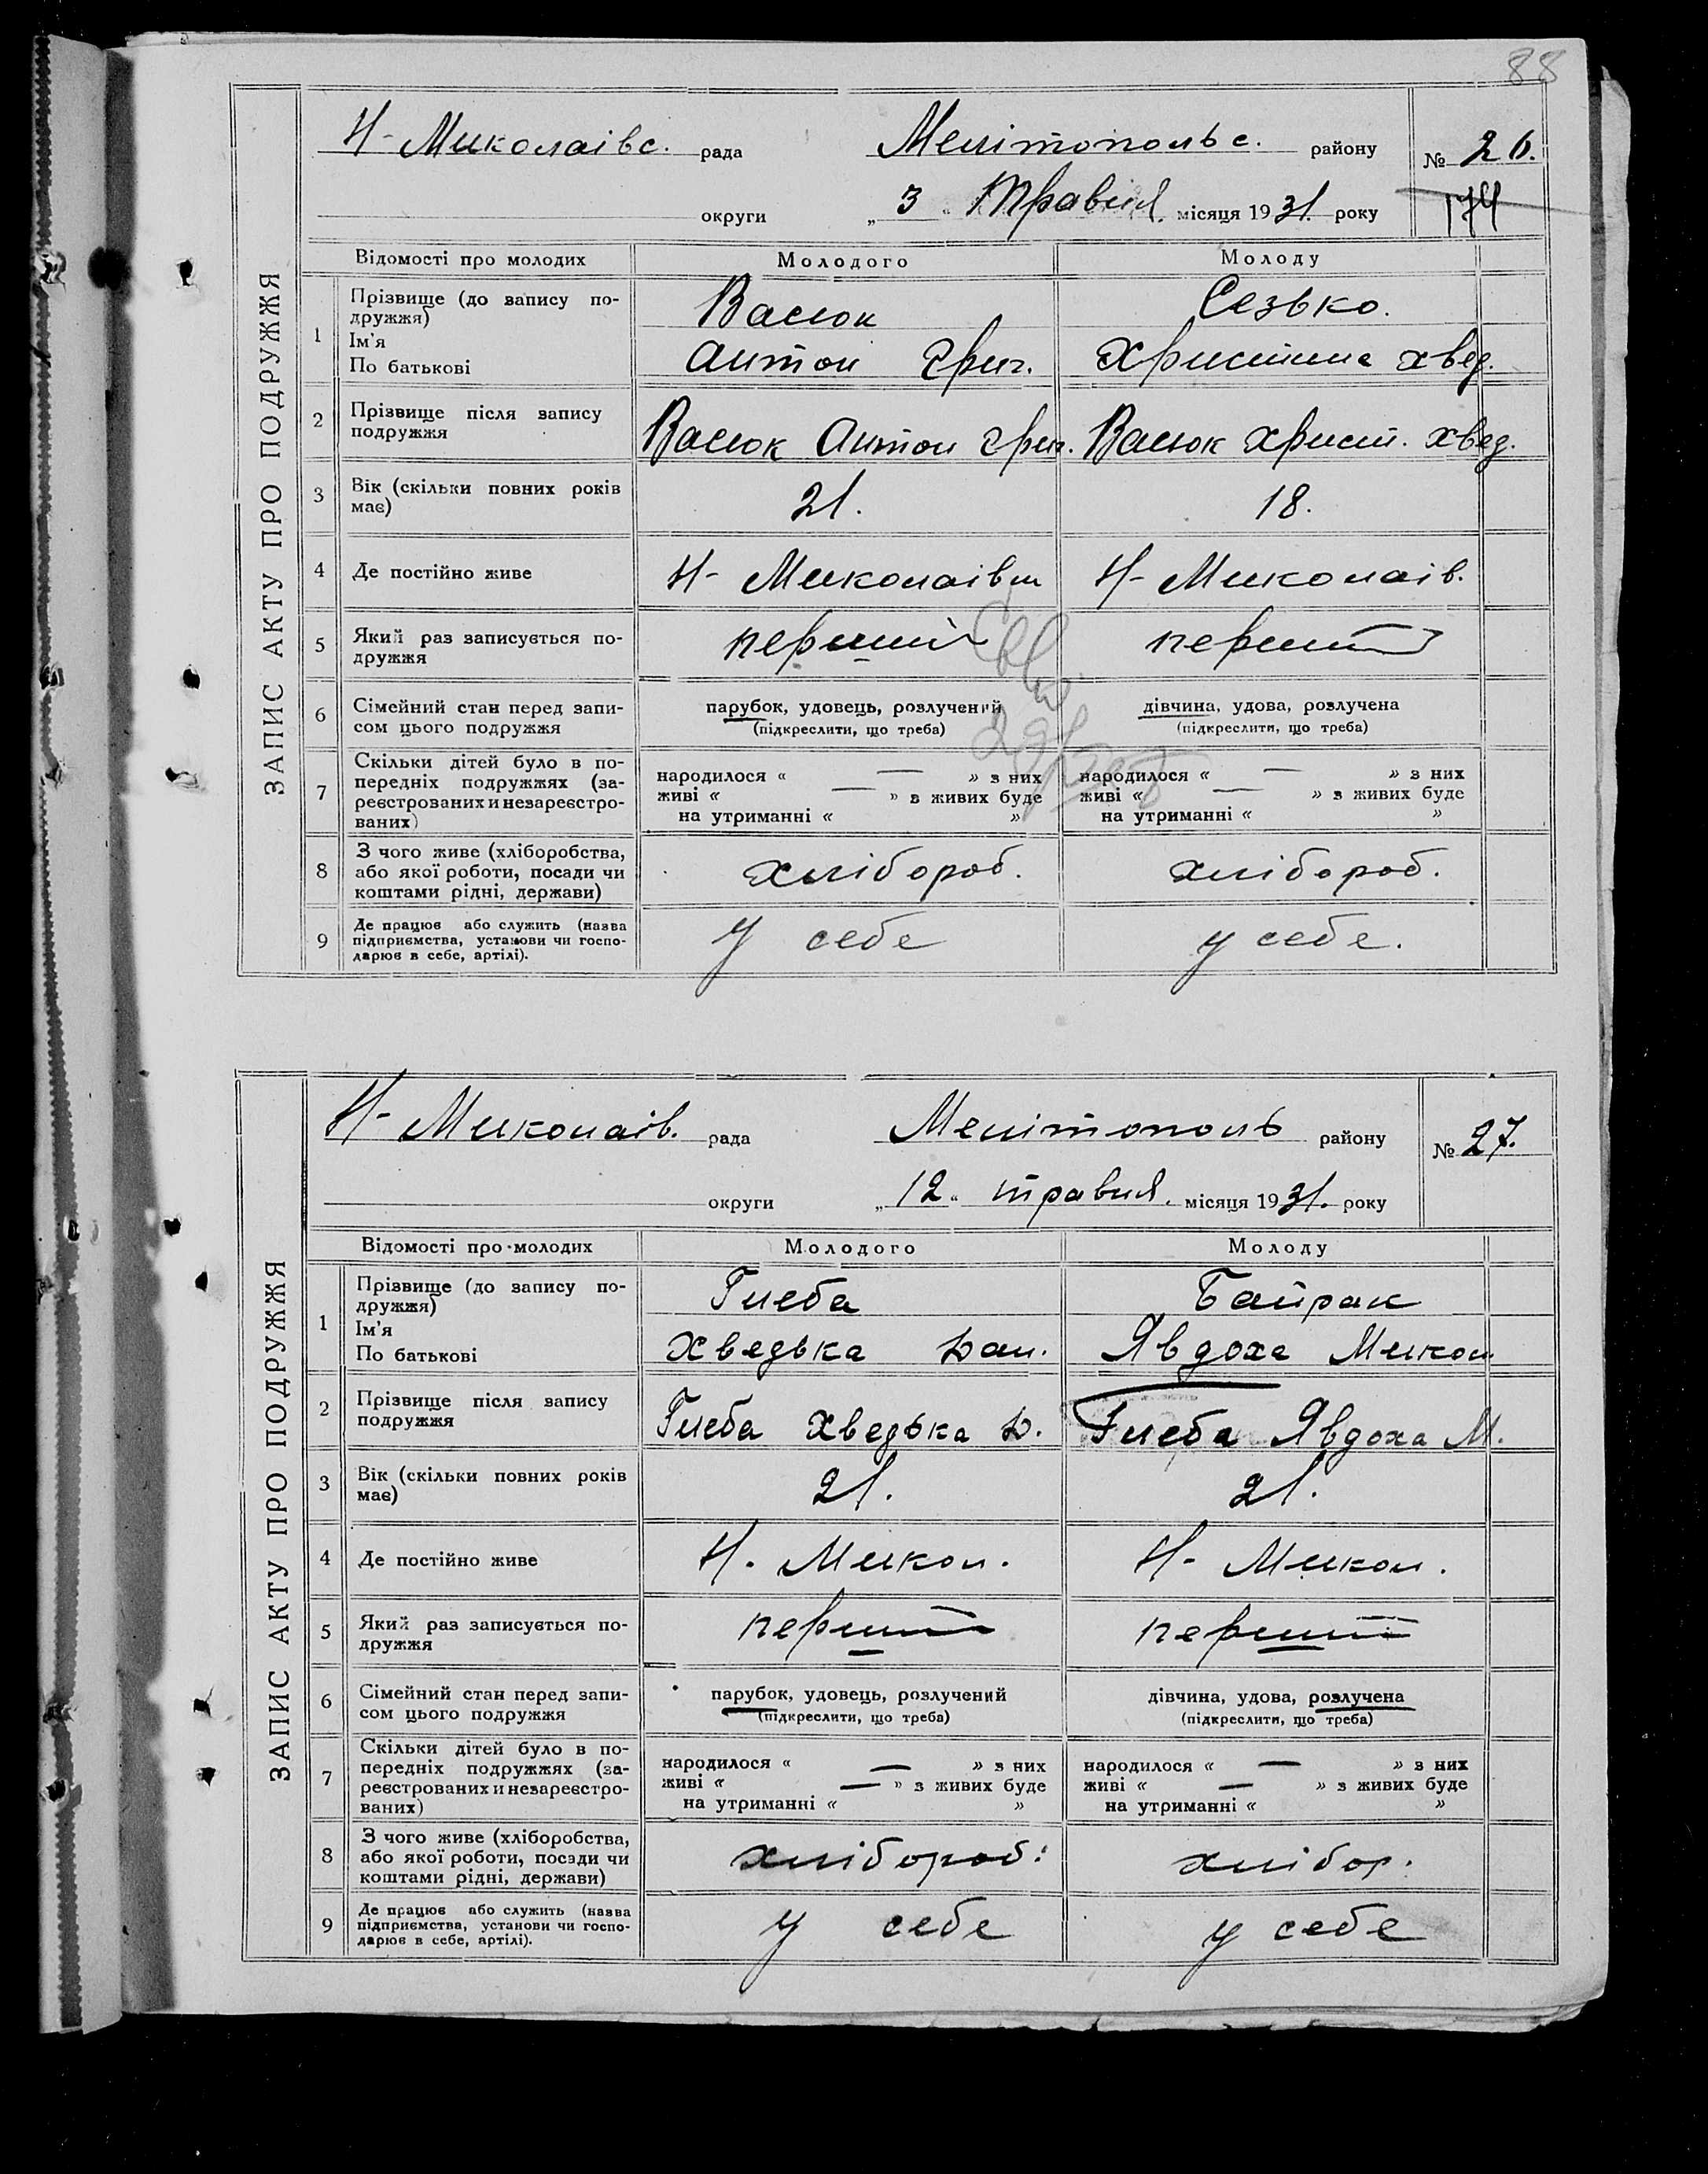 88
ЗАПИС АКТУ ПРО ПОДРУЖЖЯ
Н-Миколаївс. рада Мелітопольс. району № 26.
округи „ 3 “ Травня. місяця 1931. року 174
Відомості про молодих Молодого Молоду
1 Прізвище (до запису подружжя) Васюк Сезько.
Ім'я
По батькові Антон Григ. Христина Хвед.
2 Прізвище після запису подружжя Васюк Антон Григ. Васюк Христ. Хвед.
3 Вік (скільки повних років має) 21. 18.
4 Де постійно живе Н-Миколаївці Н-Миколаїв.
5 Який раз записується подружжя перший перший
6 Сімейний стан перед записом цього подружжя парубок, удовець, розлучений дівчина, удова, розлучена
(підкреслити, що треба) (підкреслити, що треба)
7 Скільки дітей було в попередніх подружжях (зареєстрованих и незареєстрованих)
народилося « — » з них народилося « — » з них
живі « — » з живих буде живі « — » з живих буде
на утриманні « » на утриманні « »
8 З чого живе (хліборобства, або якої роботи, посади чи коштами рідні, держави) хлібороб. хлібороб.
9 Де працює або служить (назва підприємства, установи чи господарює в себе, артілі). у себе у себе.
ЗАПИС АКТУ ПРО ПОДРУЖЖЯ
Н-Миколаїв. рада Мелітополь району № 27.
округи „ 12 “ травня. місяця 1931. року
Відомості про молодих Молодого Молоду
1 Прізвище (до запису подружжя) Глеба Байрак
Ім'я
По батькові Хведька Дан. Явдоха Микол
2 Прізвище після запису подружжя Глеба Хведька Д. Глеба Явдоха М.
3 Вік (скільки повних років має) 21. 21.
4 Де постійно живе Н. Микол. Н- Микол.
5 Який раз записується подружжя перший перший
6 Сімейний стан перед записом цього подружжя парубок, удовець, розлучений дівчина, удова, розлучена
(підкреслити, що треба) (підкреслити, що треба)
7 Скільки дітей було в попередніх подружжях (зареєстрованих и незареєстрованих)
народилося « — » з них народилося « — » з них
живі « — » з живих буде живі « — » з живих буде
на утриманні « » на утриманні « »
8 З чого живе (хліборобства, або якої роботи, посади чи коштами рідні, держави) хлібороб: хлібор.
9 Де працює або служить (назва підприємства, установи чи господарює в себе, артілі). у себе у себе